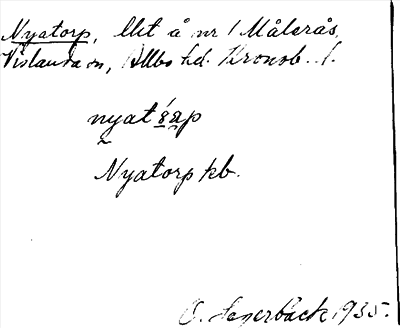 Nyatorp, lht å nr 1 Målerås,
Vislanda sn, Allbo hd. Kronob. l.
nyatórp
Nyatorp kb.
O. Segerbäck 1935.